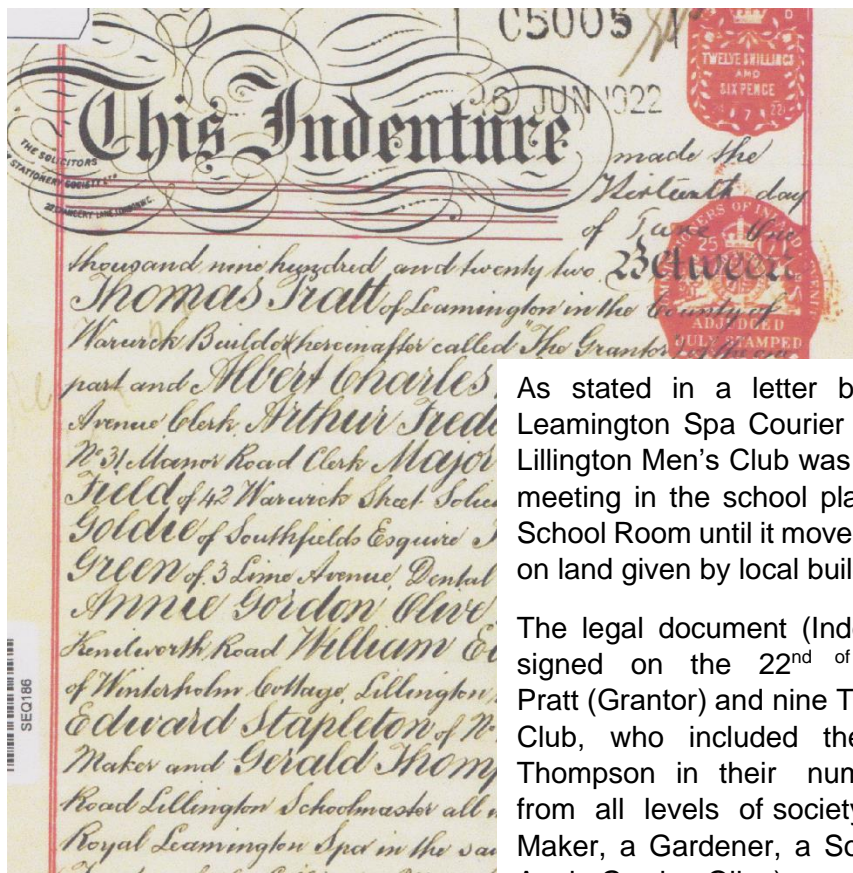 C5005
TWELVE SHILLINGS
AND
SIX PENCE
4 7 22
26 JUN 1922
This Indenture
THE SOLICITORS
STATIONERY SOCIETY LTD
22 CHANCERY LANE LONDON W.C.
made the
Thirteenth day
of June One
thousand nine hundred and twenty two Between
Thomas Pratt of Leamington in the County of
Warwick Builder (hereinafter called "The Grantor") of the one
25
ADJUDGED
DULY STAMPED
part and Albert Charles
Avenue Clerk Arthur Fred
No 31 Manor Road Clerk Major
Field of 42 Warwick Street Solic
Goldie of Southfields Esquire
Green of 3 Lime Avenue Dental
Annie Gordon Olive
Kenilworth Road William Ed
of Winterholm Cottage Lillington
Edward Stapleton of No
Maker and Gerald Thomp
Road Lillington Schoolmaster all
Royal Leamington Spa in the sai
SEQ186
As stated in a letter b
Leamington Spa Courier
Lillington Men's Club was
meeting in the school pla
School Room until it move
on land given by local buil
The legal document (Inde
signed on the 22nd of
Pratt (Grantor) and nine T
Club, who included the
Thompson in their num
from all levels of society
Maker, a Gardener, a Sc